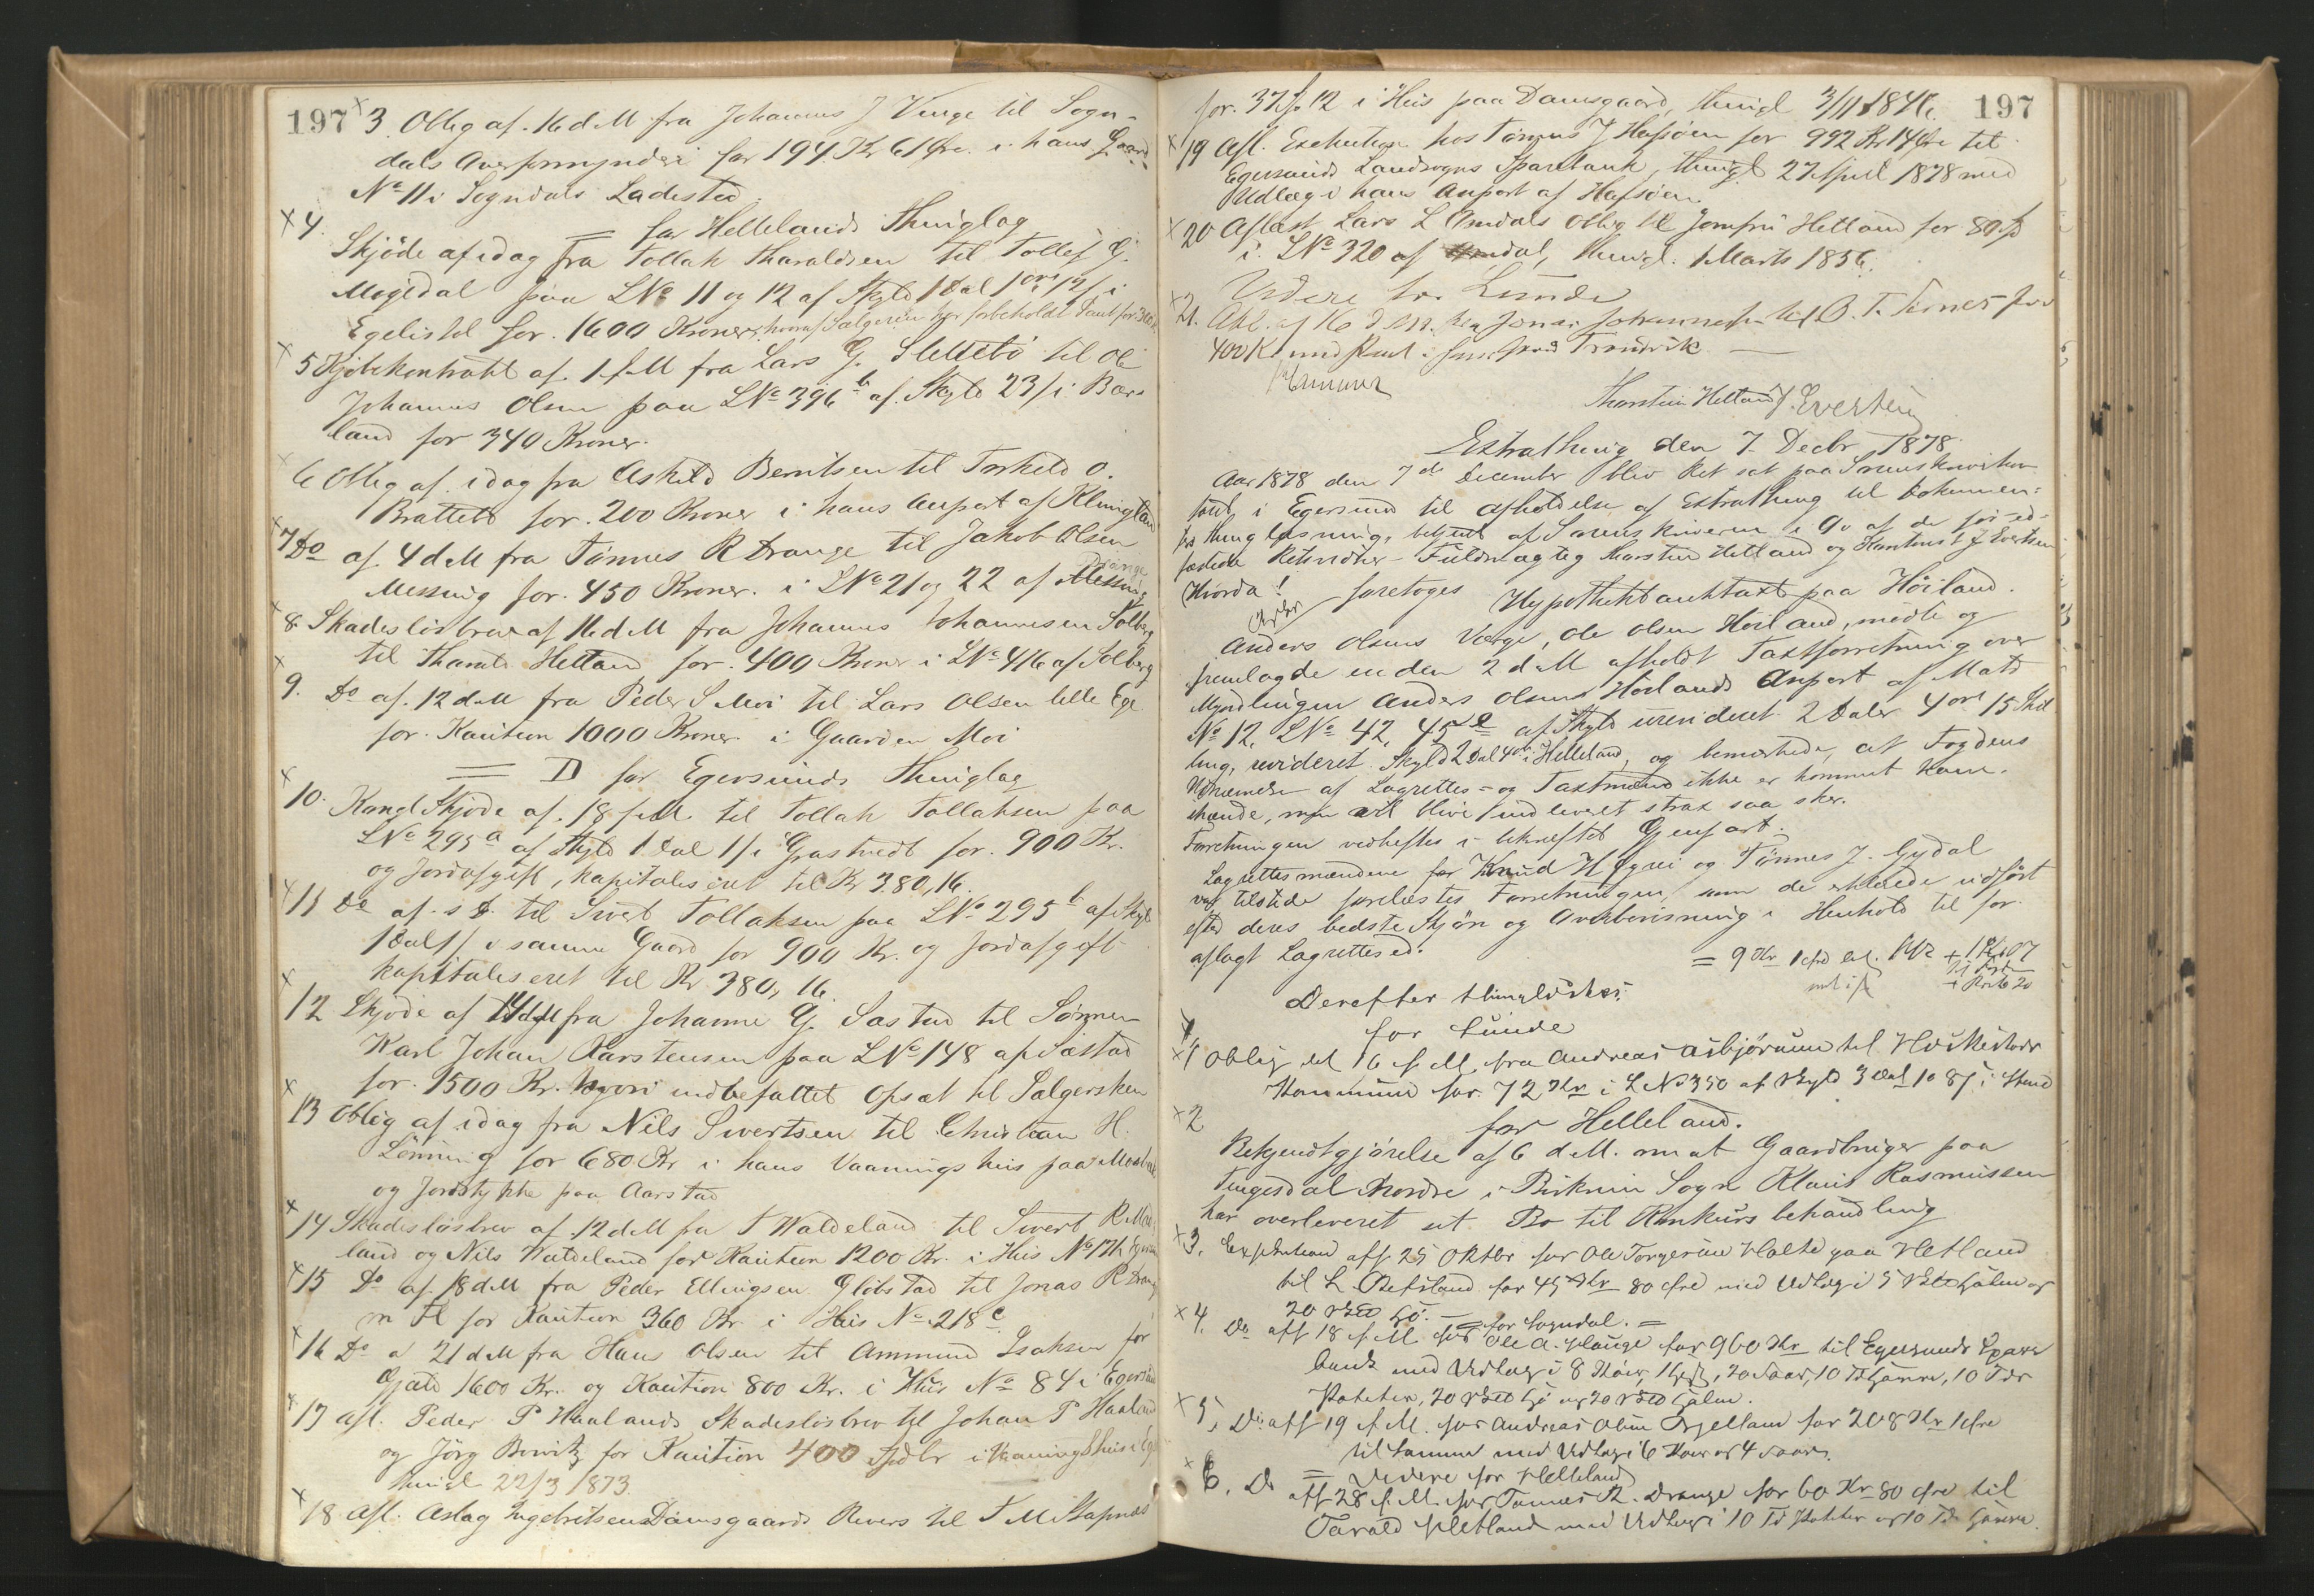 197
3 Oblig af. 16 d M fra Johannes J Vinge til Sogn-
dals Overformynderi for 194 Kr 61 Øre i hans Gaard
No 11 i Sogndals Ladested
4. = for Hellelands Thinglag
Skjøde af idag fra Tollak Tharaldsen til Tollef G.
Møgedal paa LNo 11 og 12 af Skyld 1 Dal 1 ort 12 s i
Egelisdal for. 1600 Kroner, hvoraf Sælgeren har forbeholdt Pant for
5 Kjøbekontrakt af. 1 f M fra Lars G. Slettebø til Ole
Johannes Olsen paa LNo 396 b af. Skyld 23 s i Bars
land for 340 Kroner.
6 Oblig af. idag fra Askild Berntsen til Torkild O.
Brattebø for. 200 Kroner i hans Anpart af Klungland
7 Do af. 4 d M fra Tønnes R Drange til Jakob Olsen
Messing for. 450 Kroner. i LNo 21 og 22 af Messing Drange
8. Skadesløsbrev af 16 d M fra Johannes Johannesen Solberg
til Tharald Hetland for. 400 Kroner i LNo 416 af Solberg
9. Do af. 12 d M fra Peder S Moi til Lars Olsen lille Ege
for. Kaution 1000 Kroner i Gaarden Moi
= D for Egersunds Thinglag
10. Kongl Skjøde af. 18 f M. til Tollak Tollaksen paa
LNo 295 a af Skyld 1 Dal 1 s i Grastvedt for. 900 Kr.
og Jordafgift, kapitaliseret til Kr 380,16.
11 Do af. s D. til Sivert Tollaksen paa LNo 295 b af Skyld
1 Dal 1 s i samme Gaard for 900 Kr. og Jordafgift
kapitaliseret til Kr 380,16.
12 Skjøde af 14 d M fra Johanne G. Sæstad til Sønnen
Karl Johan Karstensen paa LNo 148 af Sæstad
for. 1500 Kr. hvori indbefattet Opsæt til Sælgersken
13 Oblig af idag fra Nils Sivertsen til Christian H.
Lønning for 680 Kr i hans Vaaningshus paa
og Jordstykke paa Aarstad
14 Skadesløsbrev af. 12 d M fra T Waldeland til Sivert R
land og Nils Waldeland for Kaution 1200 Kr. i Hus No
15 Do af. 18 d M fra Peder Ellingsen Gløbstad til Jonas R Drange
m fl for Kaution 360 Kr. i Hus No 218 c
16 Do a 21 d M fra Hans Olsen til Ammund Isaksen for
Gjæld 1600 Kr. og Kaution 800 Kr. i Hus No 84 i Egersund
17 Afl. Peder P Haalands Skadesløsbrev til Johan P Haaland
og Jørg for Kaution 400 Spdlr i Vaaningshus i
thingl 22/3 1873.
18 Afl. Aslag Ingebretsens Damsgaards Revers til T M Stapnæs
197
for. 37 s. 12 i Hus paa Damsgaard, thingl 3/11 1846.
19 Afl. Exekution hos Tønnes J Hafsøen for 992 Kr 14 Øre til
Egersunds Landsogns Sparebank, thingl 27 April 1878 med
Udlæg i hans Anpart af Hafsøen.
20 Aflæst Lars L Omdals Oblig til Jomfru Hetland for 80
i. LNo 320 af Omdal, thingl. 1 Marts 1856.
Videre for Lunde
21. Obl. af 16 d M. fra Jonas Johannesen til B. T. for
400 Kr med Pant i
Thorstein Hetland J. Evertsen
Extrathing den 7. Decbr. 1878
Aar 1878 den 7de December blev Ret sat paa Sorenskriverkon
toret i Egersund til Afholdelse af Extrathing til Dokumen-
ters Thinglæsning, betjent af Sorenskriveren i Ov af de for ed-
fæstede Retsvidner - Fuldmægtig Thorstein Hetland og Kontorist J Evertsen
Hvorda!
foretoges Hypothekbanktaxt paa Høiland.
Anders Olsens Værge, Ole Olsen Høiland, mødte og
fremlagde en den 2 d M afholdt Taxtforretning over
Myndlingen Anders Olsens Høilands Anpart af Mats
No 12, LNo 42, 45 e af Skyld urevideret 2 Daler 4 ort 15 Skil
ling, revideret Skyld 2 Dal 4 ort i Helleland, og bemærkede, at Fogdens
Udnævnelse af Lagrettes- og Taxtmænd ikke er kommet tilhaan-
de, men vil blive indleveret strax saa sker.
Forretningen vedheftes i bekræftet Gjenpart.
Lagrettesmændene for Knud H Eyrei og Tønnes J. Gydal
var tilstede forelæstes Forretningen, som de erklærede udført
efter deres bedste Skjøn og Overbevisning i Henhold til for
aflagt Lagrettesed.
= 9 Kr 1
Derefter thinglæstes:
for Lunde
1 Oblig dat 16 f. M. fra Andreas Asbjørnsen til Hæskestads
Kommune for. 72 Kr i LNo 350 af Skyld 3 Dal 1 o 8 s i Stend
2 for Helleland.
Bekjendtgjørelse af 6 d M. om at Gaardbruger paa
Tengesdal Nordre i Birkrim Sogn Klaus Rasmussen
har overleveret sit Bo til Konkursbehandling
3. Exekution aff 25 Oktbr for Ole Torgersen Halte paa Hetland
til L. Refsland for 45 Kr 80 Øre med Udlæg i 5 Halm og
20 Hø. = for Sogndal. =
4. Do aff 18 f. M. for Ole A. Hauge for 960 Kr til Egersunds Spare
bank med Udlæg i 8 Køer, 1 Hest, 20 Faar, 10 Td Havre, 10 Tdr
Poteter, 20 Hø og 20 Halm.
5. Do aff 19 f. M. for Andreas Olsen Fjelland for 208 Kr 1 Øre
til samme med Udlæg i 6 Køer og 4 Faar.
= Videre for Helleland
6. Do aff 28 f. M. for Tønnes R. Drange for 60 Kr 80 Øre til
Tarald Hetland med Udlæg i 10 Td Poteter og 10 Td Havre.